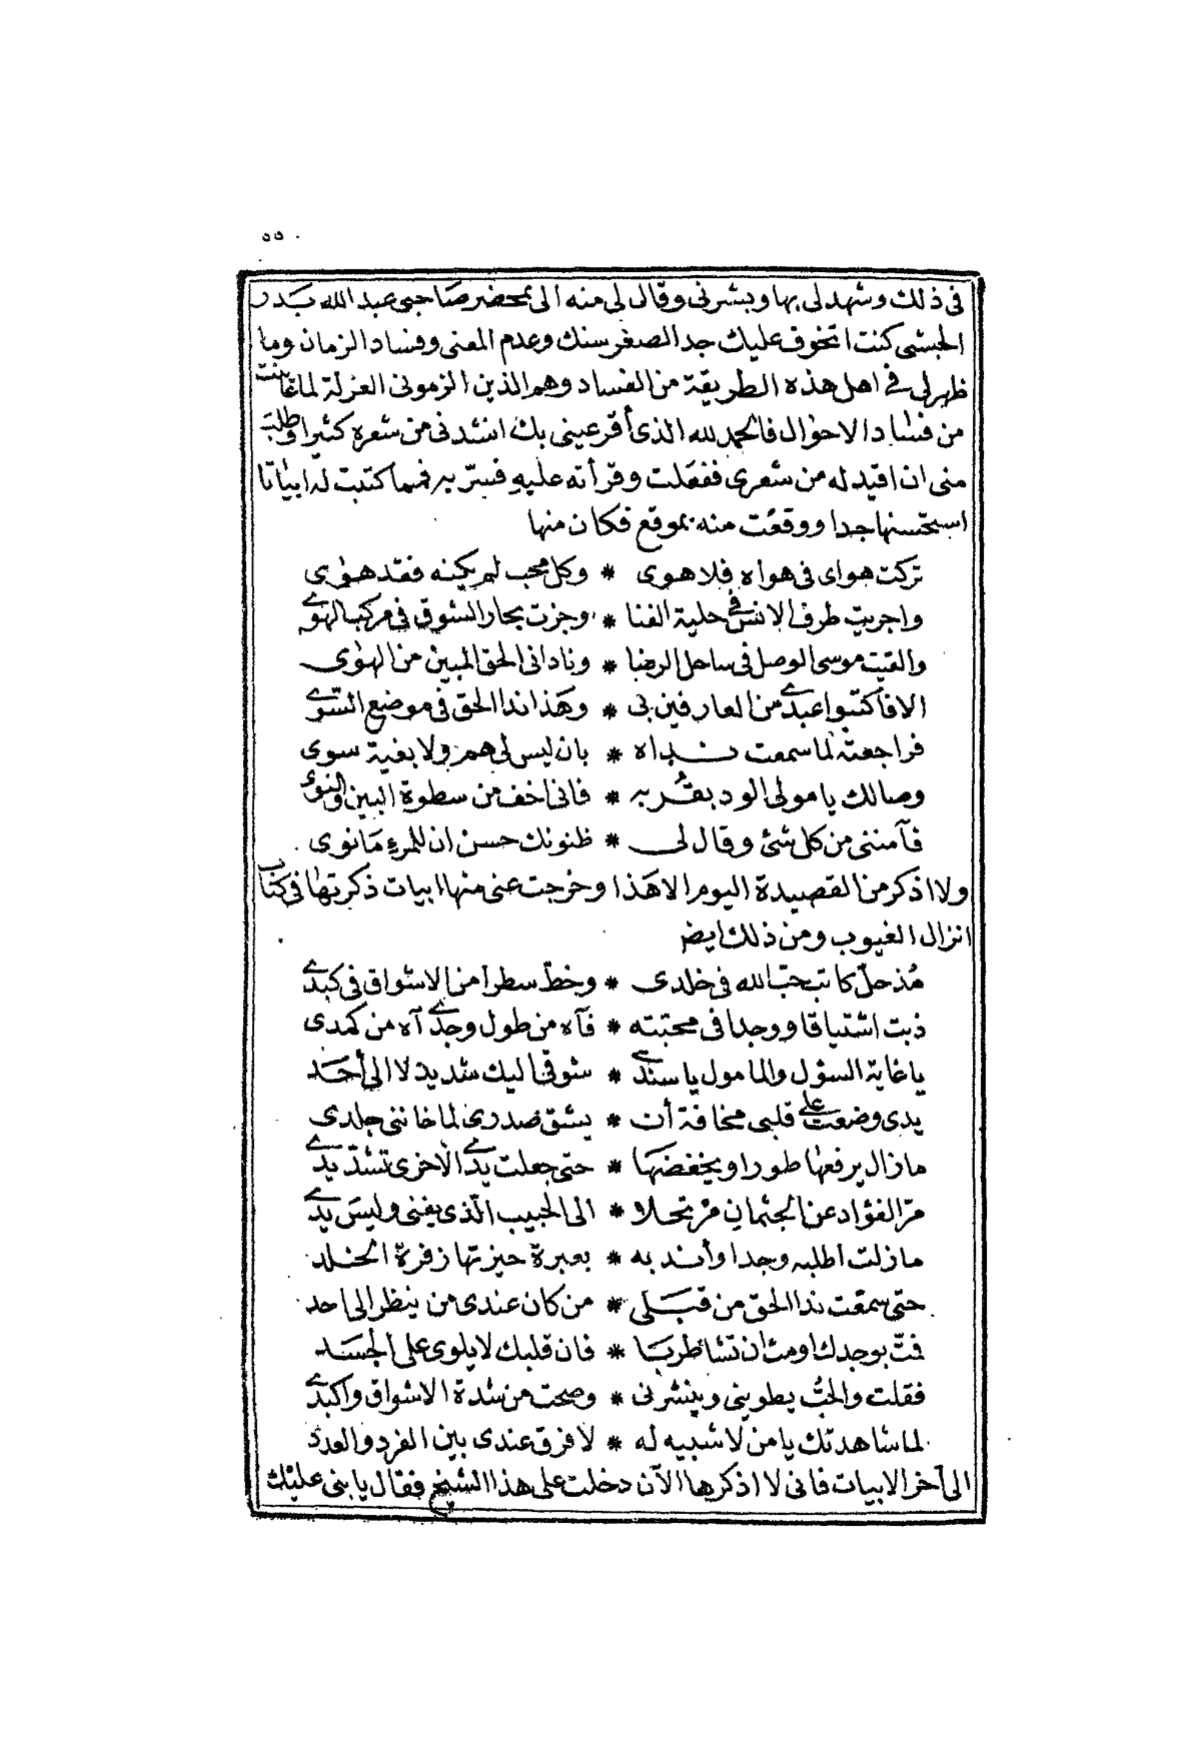 ٥٥
فى ذلك وشهد لى بها وبشرنى وقال لى منه الى بمحضر صاحبى عبد الله بدر
الحبشى كنت اتخوف عليك جدا لصغر سنك وعدم المعنى وفساد الزمان وما
ظهر لى فى اهل هذه الطريقة من الفساد وهم الذين الزمونى العزلة لما عاينت
من فساد الاحوال فالحمد لله الذى أقر عينى بك انشدنى من شعره كثيرا وطلب
منى ان اقيد له من شعرى ففعلت وقرأته عليه فسرّ به فمما كتبت له ابياتا
استحسنها جدا ووقعت منه بموقع فكان منها
تركت هواى فى هواه فلا هوى * وكل محب لم يكنه فقد هوى
واجريت طرف الانس فى حلبة الفنا * وجزت بحار الشوق فى مركب الهوى
والقيت موسى الوصل فى ساحل الرضا * ونادانى الحق المبين من الهوى
الا فاكتبوا عبدى من العارفين بى * وهذا ندا الحق فى موضع السوى
فراجعته لما سمعت نداه * بان ليس لى هم ولا بغية سوى
وصالك يا مولى الود بقربه * فانى اخف من سطوة البين والنوى
فآمننى من كل شئ وقال لى * ظنونك حسن ان للمرء ما نوى
ولا اذكر من القصيدة اليوم الا هذا وخرجت عنى منها ابيات ذكرتها فى كتاب
انزال الغيوب ومن ذلك ايضا
مُذ حلّ كاتب حبّ الله فى خلدى * وخطّ سطرا من الاشواق فى كبدى
ذبت اشتياقا ووجدا فى محبته * فآه من طول وجدى آه من كمدى
يا غاية السؤل والمامول يا سندى * شوقى اليك شديد لا الى أحد
يدى وضعت على قلبى مخافة أن * يشق صدرى لما خاننى جلدى
ما زال يرفعها طورا ويخفضها * حتى جعلت يدى الاخرى تشدّ يدى
مرّ الفؤاد عن الجثمان مرتحلا * الى الحبيب الّذى يفنى وليس يدى
ما زلت اطلبه وجدا وأندبه * بعبرة حيزتها زفرة الخلد
حتى سمعت ندا الحق من قبلى * من كان عندى من ينظر الى احد
فتّ بوجدك او مت ان تشا طربا * فان قلبك لا يلوى على الجسد
فقلت والحبُّ يطوينى وينشرنى * وصحت من شدة الاشواق واكبدى
لما شاهدتك يا من لا شبيه له * لا فرق عندى بين الفرد والعدد
الى آخر الابيات فانى لا اذكرها الآن دخلت على هذا الشيخ فقال يا بنى عليك